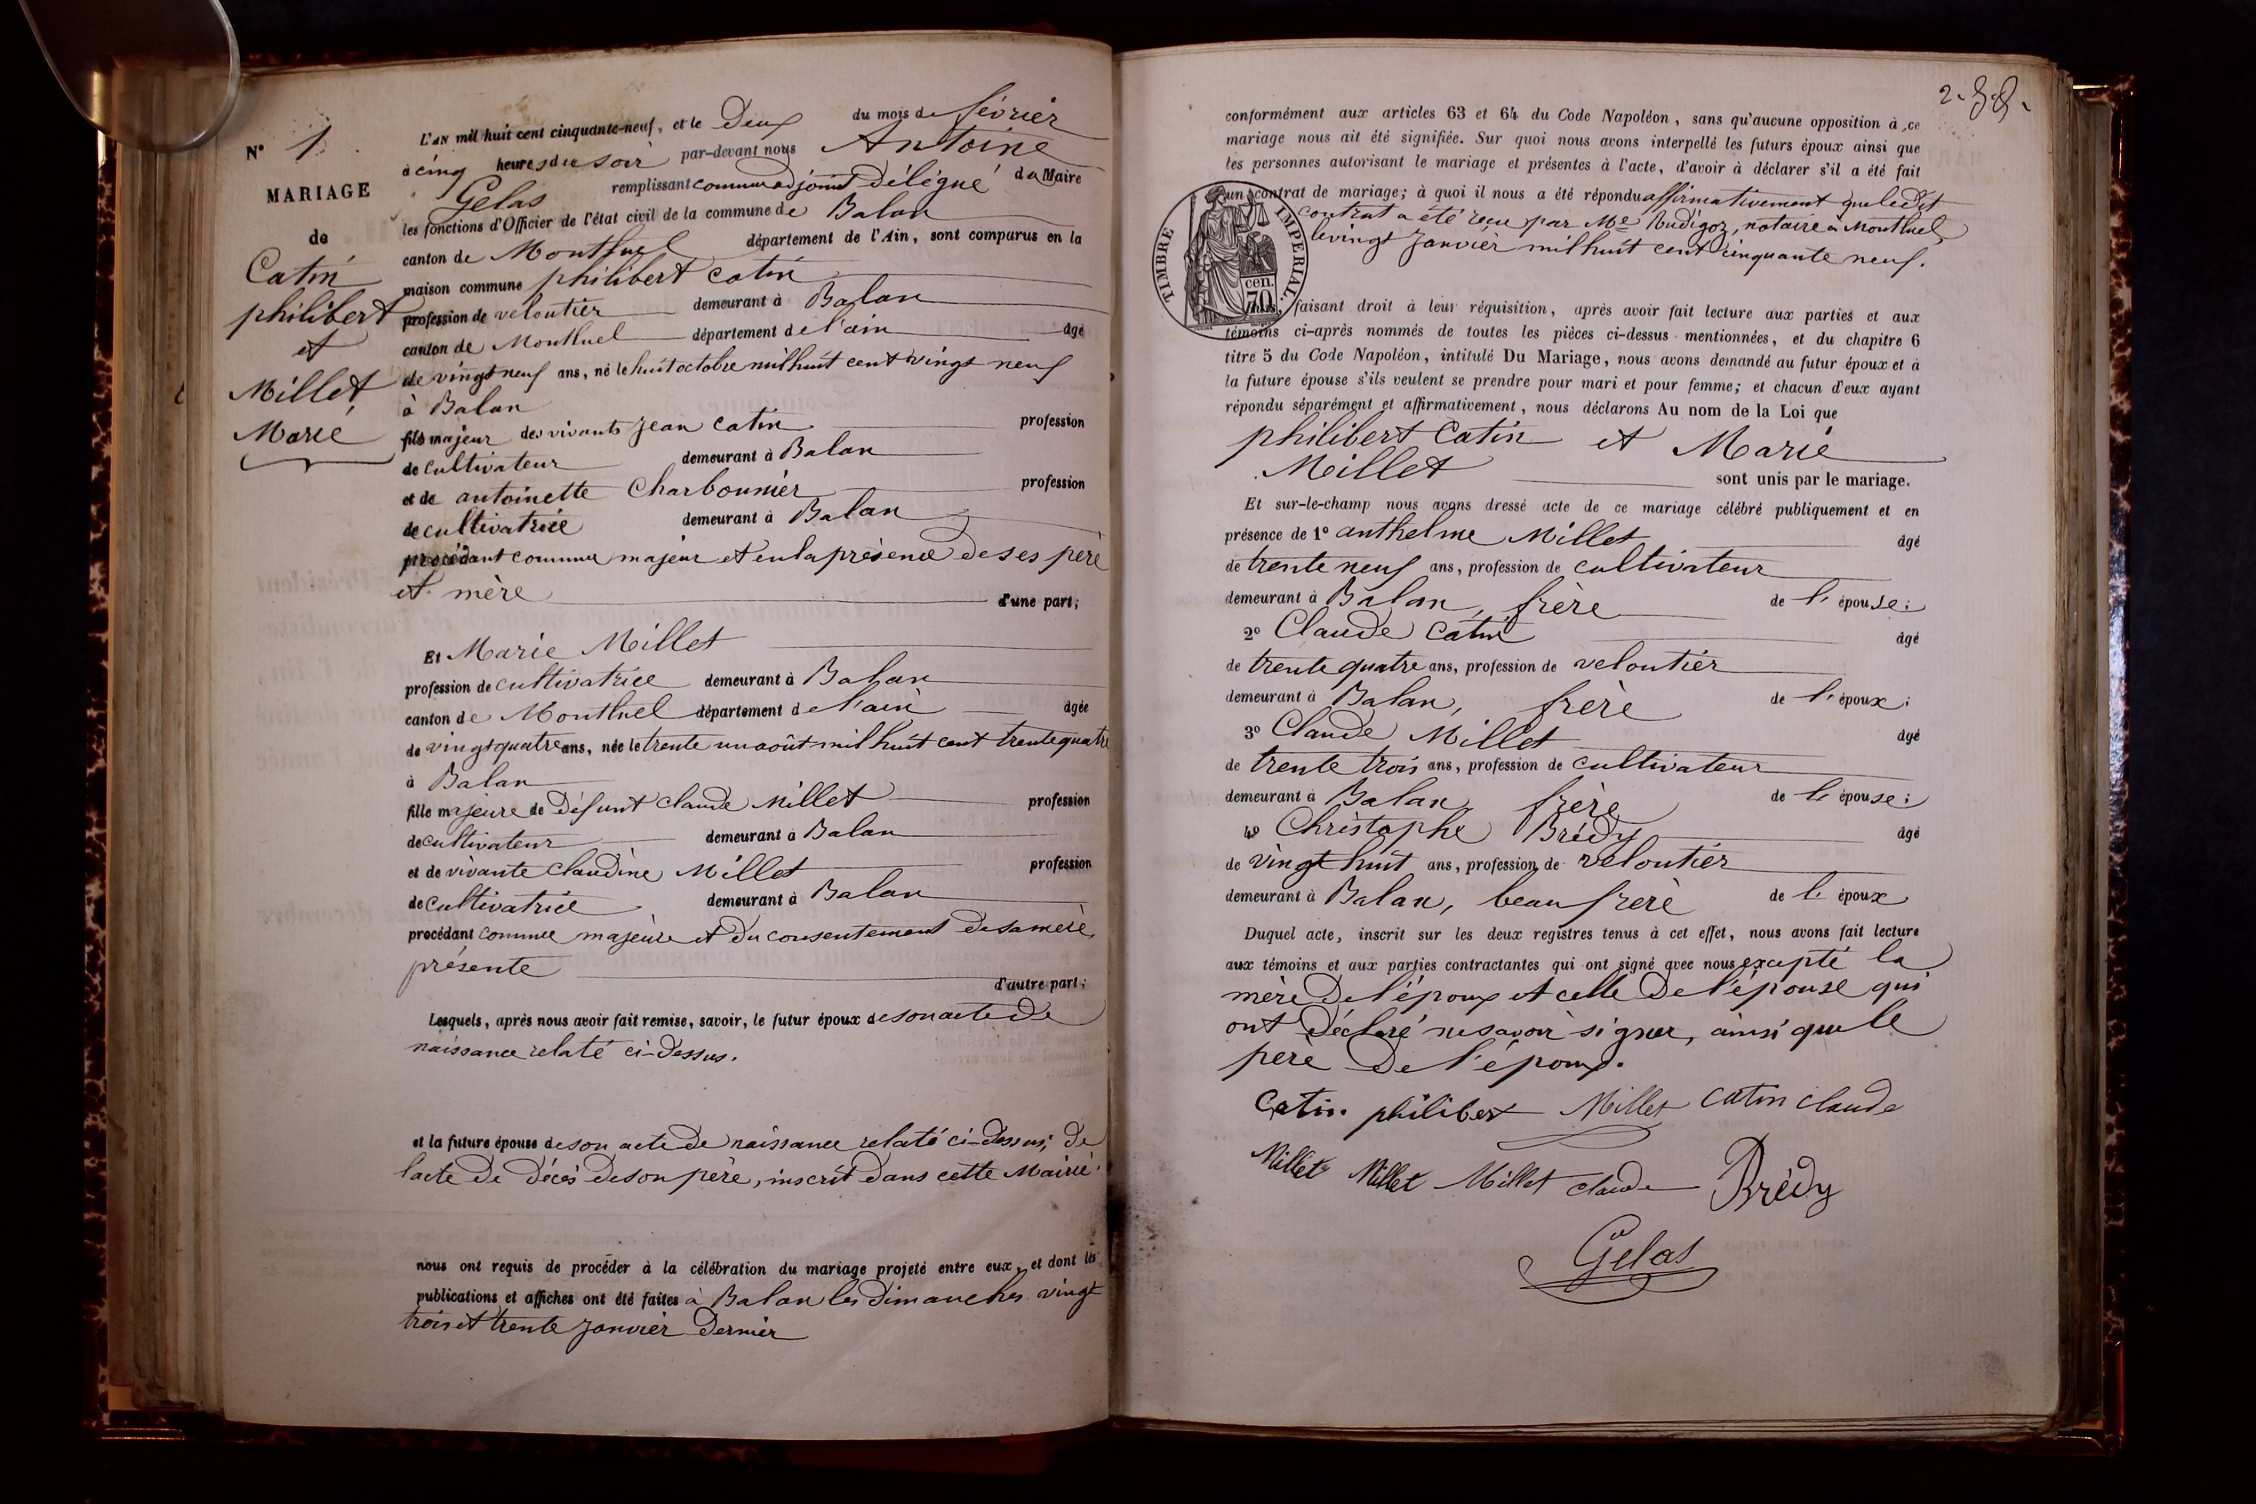 N° 1
MARIAGE
de
Catin
philibert
et
Millet,
Marie
L'AN mil huit cent cinquante-neuf, et le Deux du mois de février
à cinq heures du soir par-devant nous Antoine
Gelas remplissant comme adjoint Délégué du Maire
les fonctions d'Officier de l'état civil de la commune de Balan
canton de Montluel département de l'Ain, sont comparus en la
maison commune philibert catin
profession de veloutier demeurant à Balan
canton de Montluel département de l'ain âgé
de vingt neuf ans, né le huit octobre mil huit cent vingt neuf
à Balan
fils majeur des vivants jean catin profession
de cultivateur demeurant à Balan
et de antoinette Charbonnier profession
de cultivatrice demeurant à Balan
procédant comme majeur et en la présence de ses père
et mère d'une part;
Et Marie Millet
profession de cultivatrice demeurant à Balan
canton de Montluel département de l'ain âgée
de vingt quatre ans, née le trente un août mil huit cent trente quatre
à Balan
fille majeure de Défunt claude Millet profession
de cultivateur demeurant à Balan
et de vivante claudine Millet profession
de cultivatrice demeurant à Balan
procédant comme majeure et du consentement de sa mère,
présente d'autre part;
Lesquels, après nous avoir fait remise, savoir, le futur époux de son acte de
naissance relaté ci-dessus.
et la future épouse de son acte de naissance relaté ci-dessus; de
l'acte de décès de son père, inscrit dans cette Mairie.
nous ont requis de procéder à la célébration du mariage projeté entre eux, et dont les
publications et affiches ont été faites à Balan les Dimanches vingt
trois et trente janvier dernier
conformément aux articles 63 et 64 du Code Napoléon, sans qu'aucune opposition à ce
mariage nous ait été signifiée. Sur quoi nous avons interpellé les futurs époux ainsi que
les personnes autorisant le mariage et présentes à l'acte, d'avoir à déclarer s'il a été fait
un contrat de mariage; à quoi il nous a été répondu affirmativement que ledit
contrat a été reçu par Me Rudigoz, notaire à Montluel,
le vingt janvier mil huit cent cinquante neuf.
TIMBRE IMPERIAL.
cen. 70
Nous, faisant droit à leur réquisition, après avoir fait lecture aux parties et aux
témoins ci-après nommés de toutes les pièces ci-dessus mentionnées, et du chapitre 6
titre 5 du Code Napoléon, intitulé Du Mariage, nous avons demandé au futur époux et à
la future épouse s'ils veulent se prendre pour mari et pour femme; et chacun d'eux ayant
répondu séparément et affirmativement, nous déclarons Au nom de la Loi que
philibert Catin et Marie
Millet sont unis par le mariage.
Et sur-le-champ nous avons dressé acte de ce mariage célébré publiquement et en
présence de 1° anthelme Millet âgé
de trente neuf ans, profession de cultivateur
demeurant à Balan, frère de l'épouse;
2° Claude Catin âgé
de trente quatre ans, profession de veloutier
demeurant à Balan, frère de l'époux;
3° Claude Millet âgé
de trente trois ans, profession de cultivateur
demeurant à Balan, frère de l'épouse;
4° Christophe Brédy âgé
de vingt huit ans, profession de veloutier
demeurant à Balan, beau frère de l'époux
Duquel acte, inscrit sur les deux registres tenus à cet effet, nous avons fait lecture
aux témoins et aux parties contractantes qui ont signé avec nous excepté la
mère de l'époux et celle de l'épouse qui
ont déclaré ne savoir signer, ainsi que le
père de l'époux.
Catin philibert Millet catin claude
Millet Millet Millet claude Brédy
Gelas